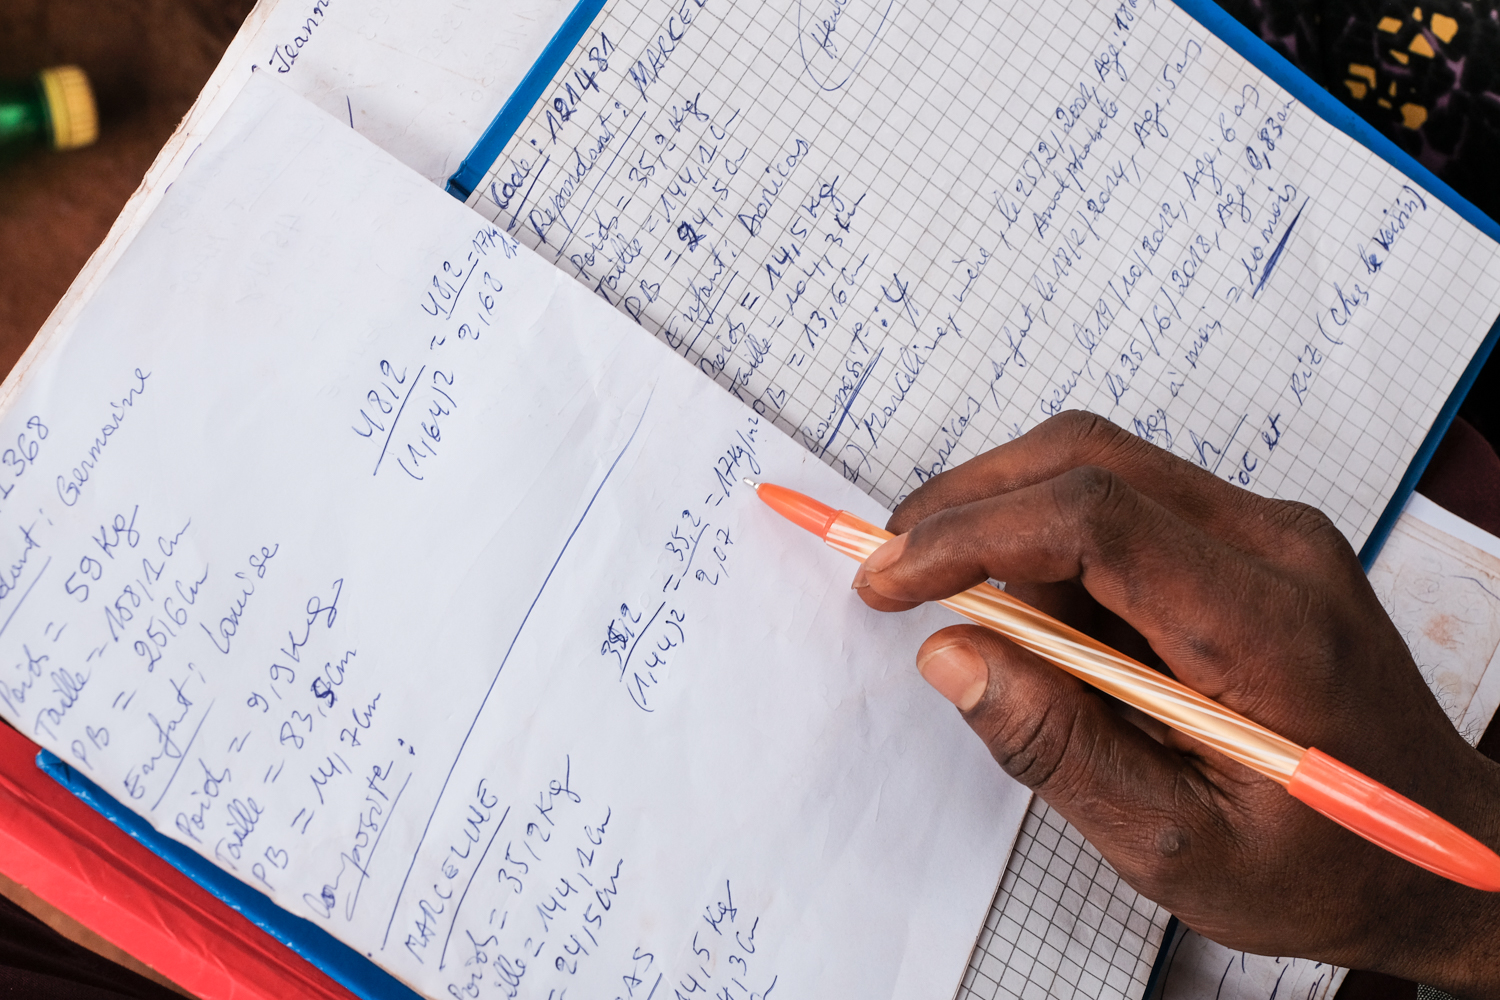 Jeann
1368
dant : Germaine
Poids = 59 Kg
Taille = 158,1 Cm
PB = 25,6 Cm
Enfant : Louise
Poids = 9,9 Kg
Taille = 83,5 Cm
PB = 14,7 Cm
Composite :
48,2 / (1,64)2 = 48,2 / 2,68 = 17 Kg/m2
MARCELINE
Poids = 35,2 Kg
aille = 144,1 Cm
= 24,5 Cm
AS
14,5 Kg
4,3 Cm
35,2 / (1,44)2 = 35,2 / 2,07 = 17 Kg/m2
Code : 121481
Repondant : MARCEL
Poids = 35,2 Kg
Taille = 144,1 Cm
PB = 24,5 Cm
Enfant : Donicas
Poids = 14,5 Kg
Taille = 104,3 Cm
PB = 13,6 Cm
Composite : 4
1) Marceline, mère, le 25/2/2001, Age : 18
Analphabete
Donicas, enfant, le 17/2/2014, Age : 5 as
soeur, le 19/10/2012, Age : 6 as
le 25/6/2018, Age : 0,83 an
Age à mois = 10 mois
h
oc et Riz (chez le voisin)